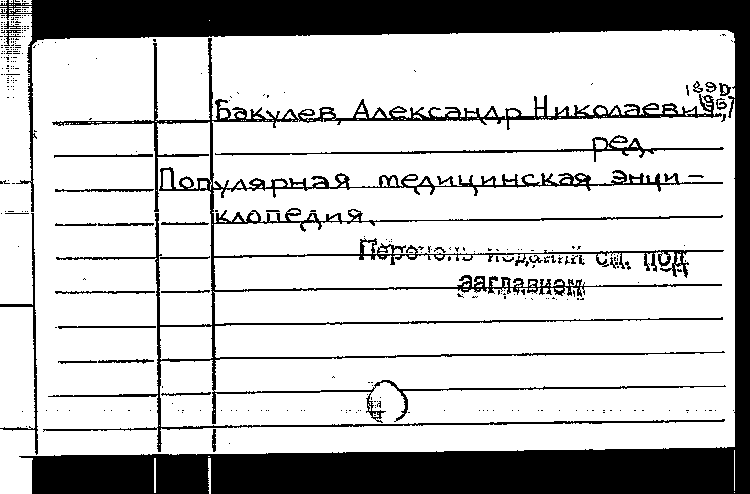 1890-
1967
Бакулев, Александр Николаевич,
ред.
Популярная медицинская энци-
клопедия.
Перечень изданий см. под
заглавием